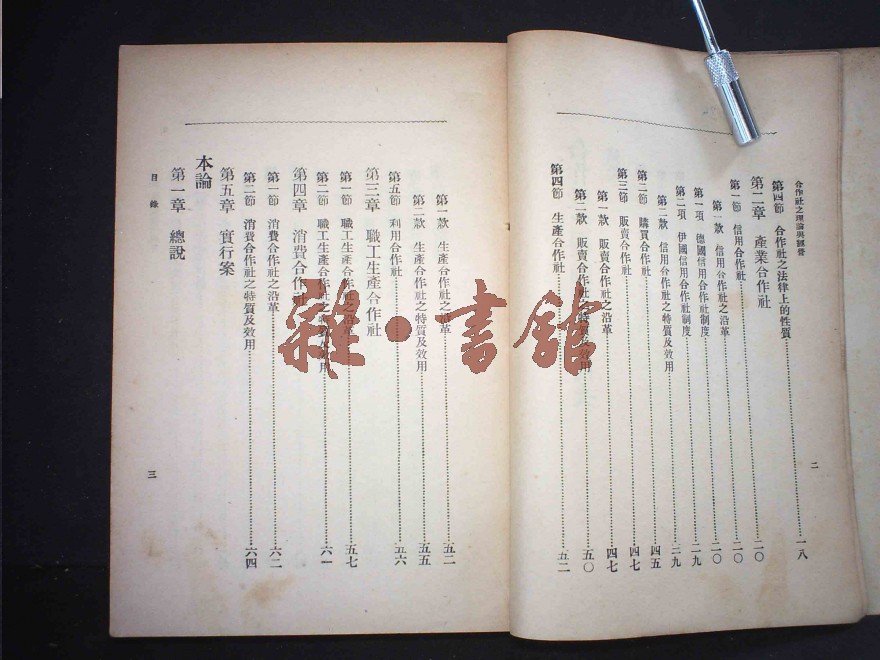 合作社之理論與經營
第四節 合作社之法律上的性質 一八
第二章 產業合作社 二〇
第一節 信用合作社 二〇
第一款 信用合作社之沿革 二〇
第一項 德國信用合作社制度 二九
第二項 伊國信用合作社制度 二九
第二款 信用合作社之特質及效用
第二節 購買合作社 四五
第三節 販賣合作社 四七
第一款 販賣合作社之沿革 四七
第二款 販賣合作社之特質及效用 五〇
第四節 生產合作社 五二
二
第一款 生產合作社之沿革 五二
第二款 生產合作社之特質及效用 五五
第五節 利用合作社 五六
第三章 職工生產合作社
第一節 職工生產合作社之沿革 五七
第二節 職工生產合作社之特質及效用 六一
第四章 消費合作社
第一節 消費合作社之沿革 六二
第二節 消費合作社之特質及效用 六四
第五章 實行案
本論
第一章 總說
目錄
三
雜·書館